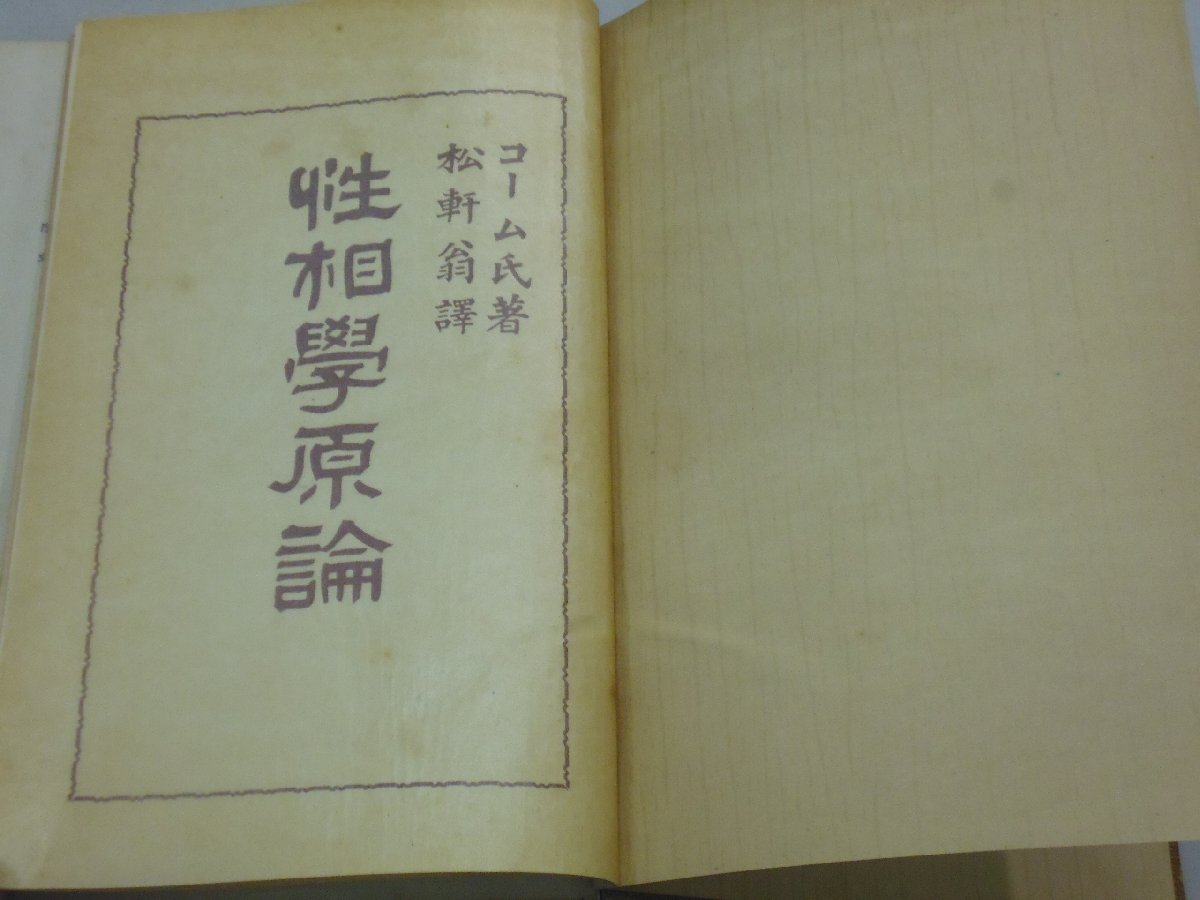 コーム氏著
松軒翁譯
性相學原論